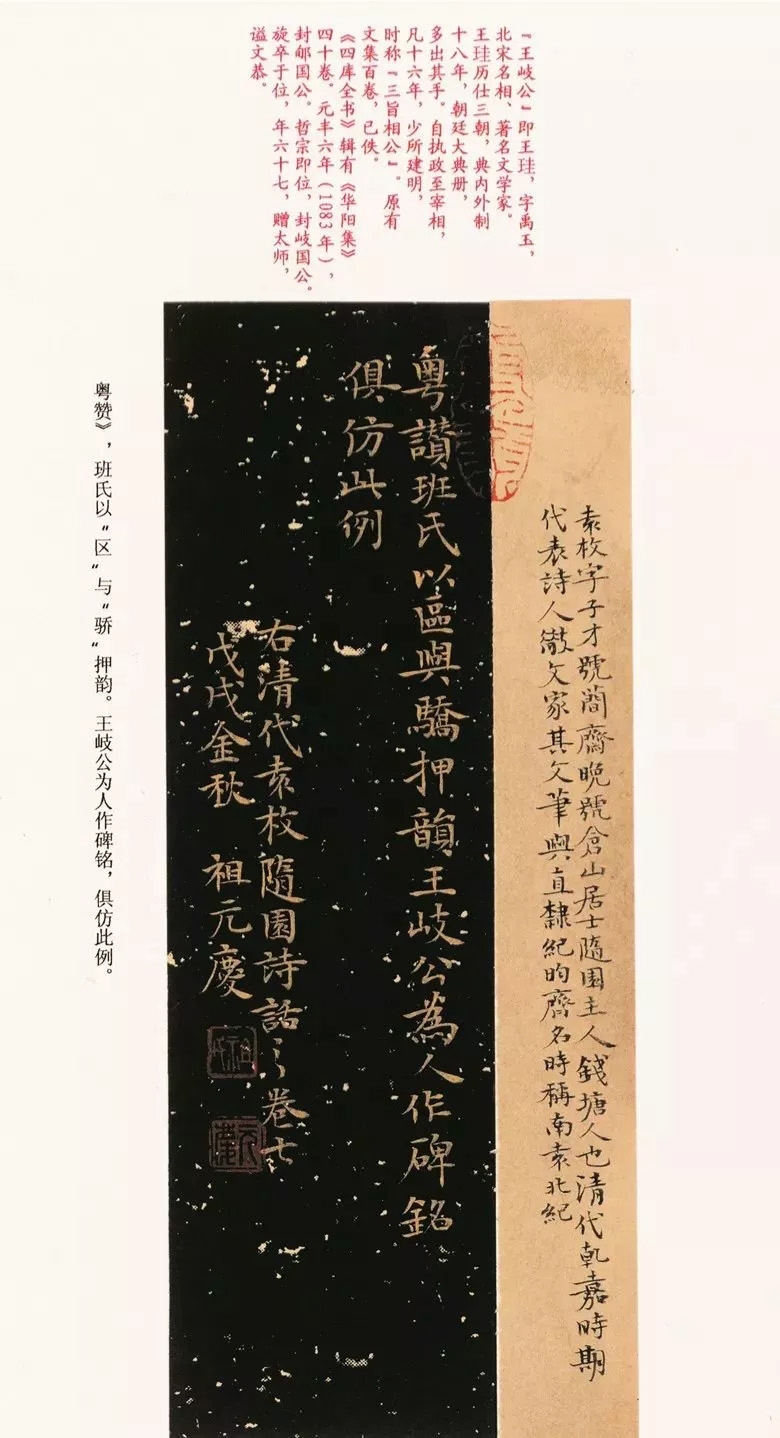 『王岐公』即王珪，字禹玉，
北宋名相、著名文学家。
王珪历仕三朝，典内外制
十八年，朝廷大典册，
多出其手。自执政至宰相，
凡十六年，少所建明，
时称『三旨相公』。原有
文集百卷，已佚。
《四库全书》辑有《华阳集》
四十卷。元丰六年（1083年），
封郇国公。哲宗即位，封岐国公。
旋卒于位，年六十七，赠太师，
谥文恭。
袁枚字子才號簡齋晚號倉山居士隨園主人錢塘人也清代乾嘉時期
代表詩人散文家其文筆與直隸紀昀齊名時稱南袁北紀
粵讚班氏以區與驕押韻王岐公為人作碑銘
俱仿此例
右清代袁枚隨園詩話之卷七
戊戌金秋 祖元慶
粤赞》，班氏以“区”与“骄”押韵。王岐公为人作碑铭，俱仿此例。